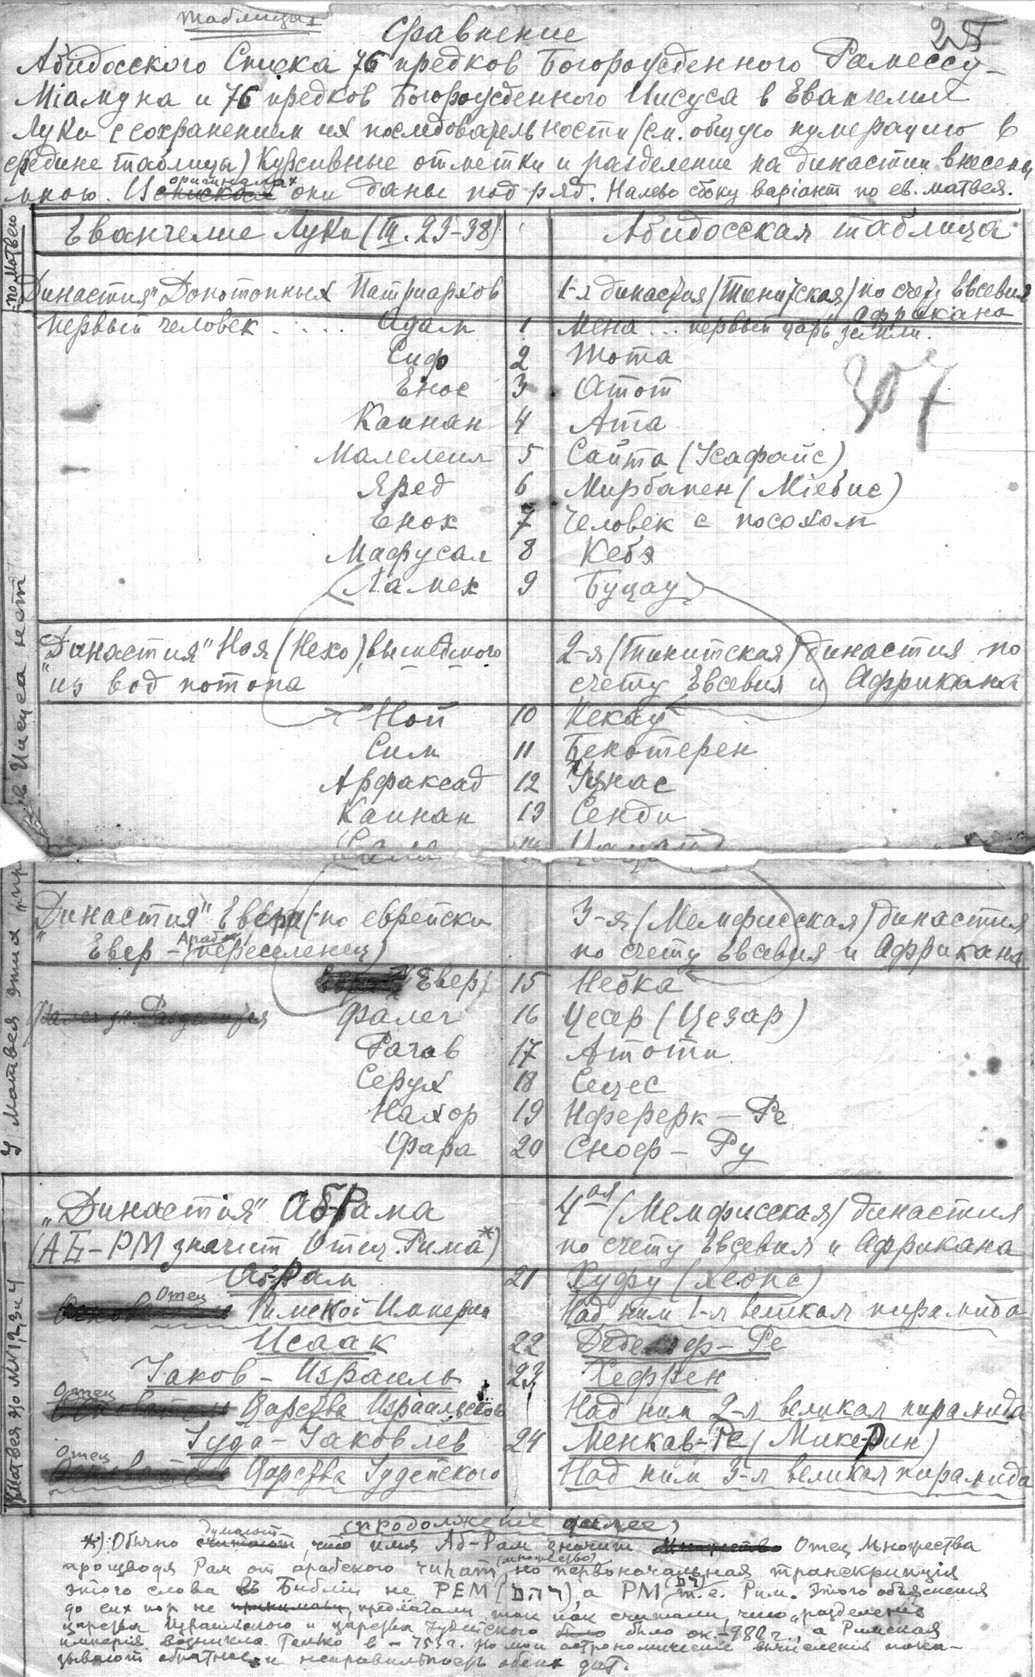 Таблица
25
Сравнение
Абидосского Списка 76 предков Богорожденного Рамессу-
Міамуна и 76 предков Богорожденного Иисуса в Евангелии
Луки с сохранением их последовательности (см. общую нумерацию в
средине таблицы) Курсивные отметки и разделение на династии внесены
мною. В оригиналах они даны под ряд. Налево сбоку варіант по ев. Матвея.
по Матвею
Евангелие Луки (III. 23-38)
Абидосская таблица
"Династия" Допотопных Патриархов
1-я династия (Тинитская) по счету Евсевия и Африкана
первый человек..... Адам 1 Мена... первый царь земли.
Сиф 2 Тота
307
Енос 3 Атот
Каинан 4 Ата
Малелеил 5 Сайта (Усафайс)
Яред 6 Мирбапен (Міебис)
Енох 7 Человек с посохом
Мафусал 8 Кебх
(Ламех 9 Буцау)
"Династия" Ноя (Нехо), вышедшого
из вод потопа
2-я (Тинитская) династия по
счету Евсевия и Африкана
Ной 10 Кекау
Сим 11 Бенотерен
Арфаксад 12 Утнас
Каинан 13 Сенди
"Династия" Евера (по еврейски
Евер - переселенец)
3-я (Мемфисская) династия
по счету Евсевия и Африкана
Евер 15 Небка
Фалег 16 Цесер (Цезар)
Рагав 17 Атоти
Серух 18 Сецес
Нахор 19 Нферерк-Ре
Фара 20 Сноф-Ру
У Матвея этих
в Иисуса нет
"Династія" Аб-Рама
(АБ-РМ значит Отец Рима*)
4ая (Мемфисская) династия
по счету Евсевия и Африкана
Аб-Рам 21 Хуфу (Хеопс)
Отец Римской Империи
Над ним 1-я великая пирамида
Исаак 22 Деделф-Ре
Іаков-Израиль 23 Хефрен
Отец Царства Израильского
Над ним 2-я великая пирамида
Іуда-Іаковлев 24 Менкав-Ре (Микерин)
Отец Царства Іудейского
Над ним 3-я великая пирамида
У Матвея по №№ 1, 2, 3 и 4
(продолжение далее)
*) Обычно думают, что имя Аб-Рам значит Отец Множества
производя Рам от арабского (множество), но первоначальная транскрипція
этого слова в Библіи не РЕМ, а РМ т.е. Рим. Этого объяснения
до сих пор не предлагали, так как считали, что "разделение
царства Израильского и царства Іудейского было ок. -980 г., а Римская
империя возникла только в -753 г. Но мои астрономические вычисления пока-
зывают обратное и неправильность обеих дат.